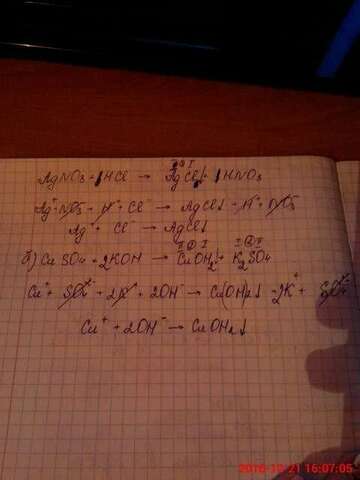 AgNO₃ + HCl → AgCl↓ + HNO₃
Ag⁺ + NO₃⁻ + H⁺ + Cl⁻ → AgCl↓ + H⁺ + NO₃⁻
Ag⁺ + Cl⁻ → AgCl↓
б) CuSO₄ + 2KOH → CuOH₂↓ + K₂SO₄
Cu⁺ + SO₄²⁻ + 2K⁺ + 2OH⁻ → Cu(OH)₂↓ + 2K⁺ + SO₄²⁻
Cu⁺ + 2OH⁻ → CuOH₂↓
2016-12-21 16:07:05